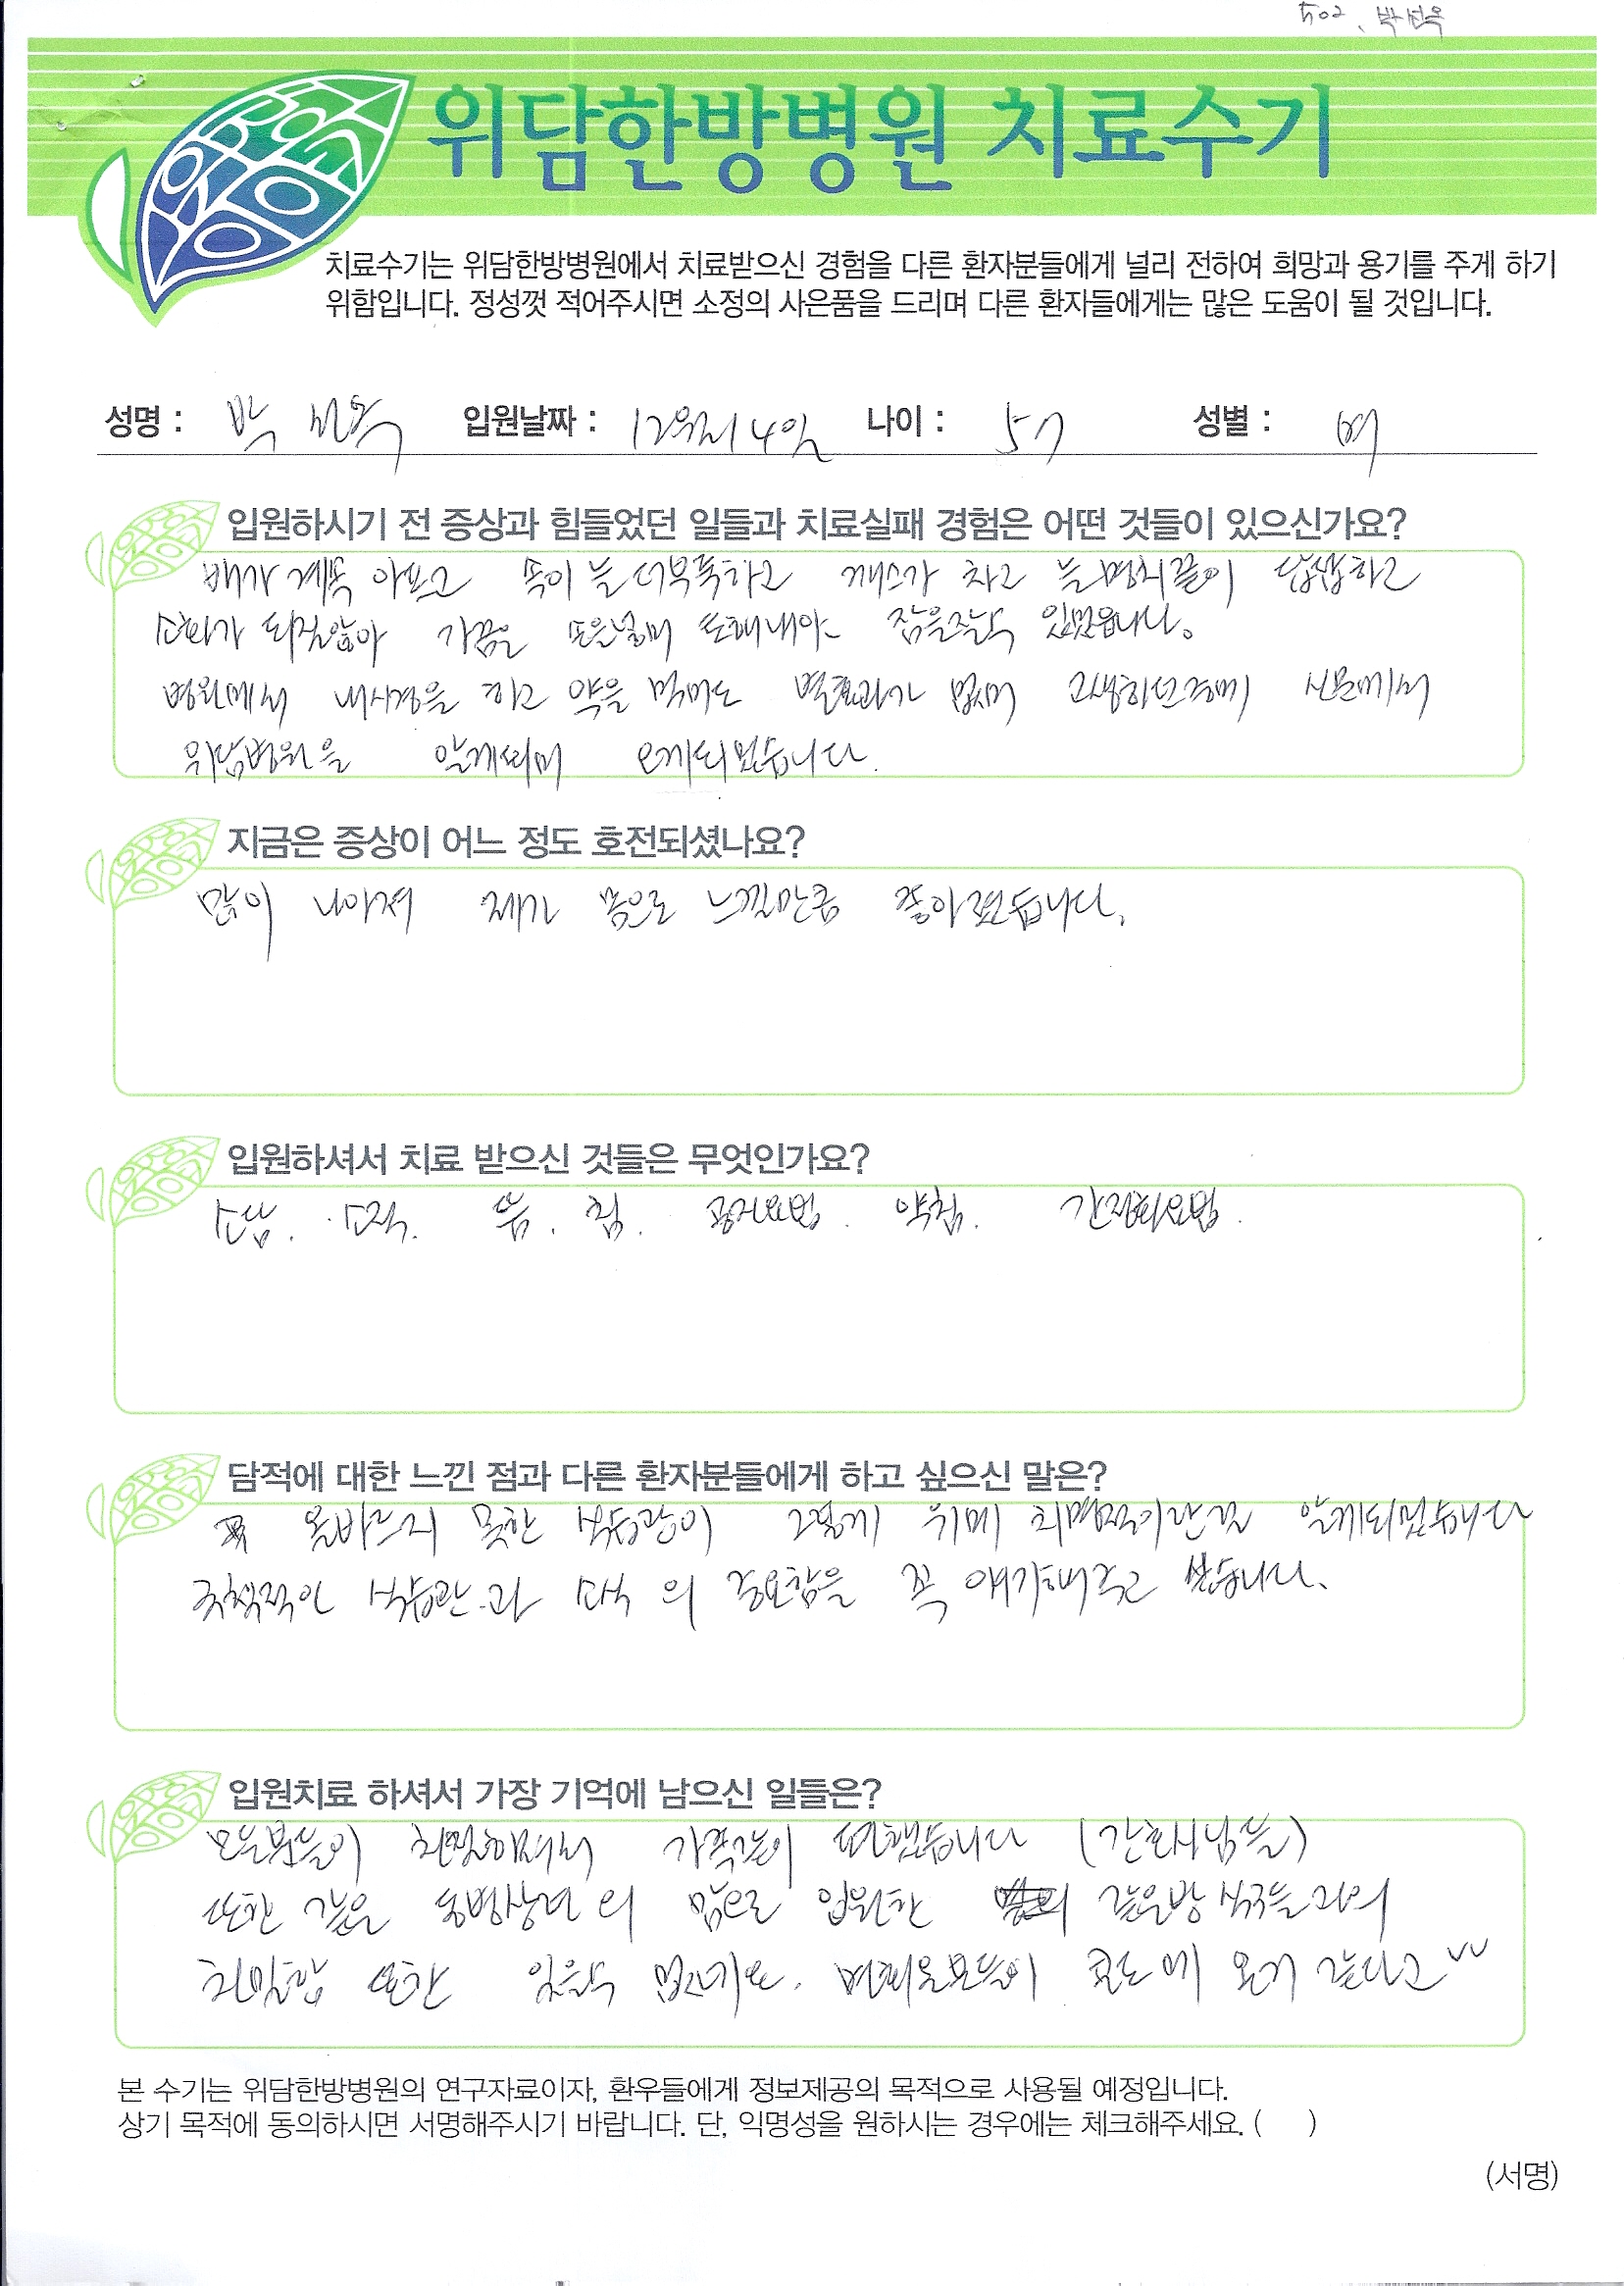 502. 박선옥
위담한방병원 치료수기
치료수기는 위담한방병원에서 치료받으신 경험을 다른 환자분들에게 널리 전하여 희망과 용기를 주게 하기
위함입니다. 정성껏 적어주시면 소정의 사은품을 드리며 다른 환자들에게는 많은 도움이 될 것입니다.
성명 : 박 선옥 입원날짜 : 12월 14일 나이 : 57 성별 : 여
입원하시기 전 증상과 힘들었던 일들과 치료실패 경험은 어떤 것들이 있으신가요?
배가 계속 아프고 속이 늘 더부룩하고 깨스가 차고 늘 명치끝이 답답하고
소화가 되질않아 가끔은 손을넣어 토해내야 잠을잘수 있었읍니다.
병원에서 내시경을 하고 약을 먹어도 별효과가 없어 고생하던중에 신문에서
위담병원을 알게되어 오게되었습니다.
지금은 증상이 어느 정도 호전되셨나요?
많이 나아져 제가 몸으로 느낄만큼 좋아졌습니다.
입원하셔서 치료 받으신 것들은 무엇인가요?
소담. 소적. 뜸. 침. 공진요법. 약침. 간정화요법.
담적에 대한 느낀 점과 다른 환자분들에게 하고 싶으신 말은?
올바르지 못한 식습관이 그렇게 위에 치명적이란걸 알게되었습니다
규칙적인 식습관과 소식 의 중요함을 꼭 얘기해주고 싶습니다.
입원치료 하셔서 가장 기억에 남으신 일들은?
모든분들이 친절하셔서 가족같이 편했습니다 (간호사님들)
또한 같은 동병상련의 맘으로 입원한 같은방 식구들과의
친밀함 또한 잊을수 없네요.
본 수기는 위담한방병원의 연구자료이자, 환우들에게 정보제공의 목적으로 사용될 예정입니다.
상기 목적에 동의하시면 서명해주시기 바랍니다. 단, 익명성을 원하시는 경우에는 체크해주세요. ( )
(서명)